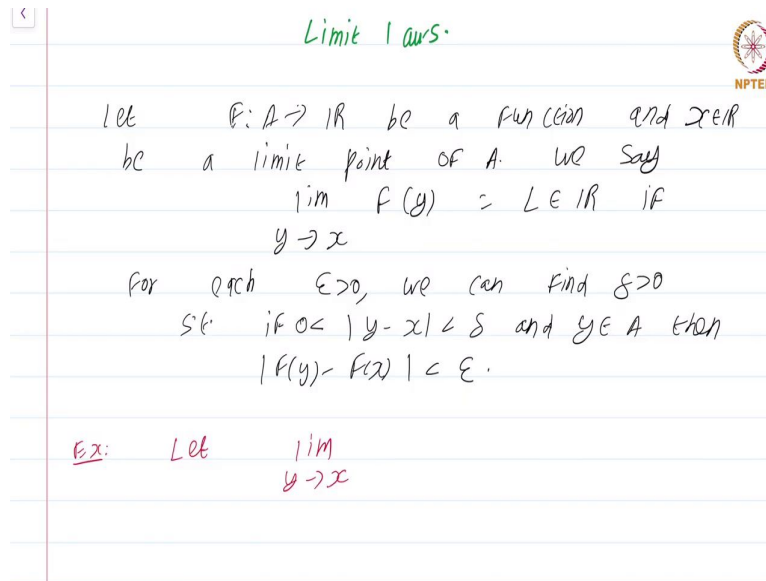 Limit laws.
NPTE
Let F: A → ℝ be a function and x∈ℝ
be a limit point of A. we say
lim F(y) = L ∈ ℝ if
y → x
For each ε>0, we can find δ>0
s.t. if 0< |y-x| < δ and y ∈ A then
|F(y)- F(x)| < ε.
Ex: Let lim
y → x